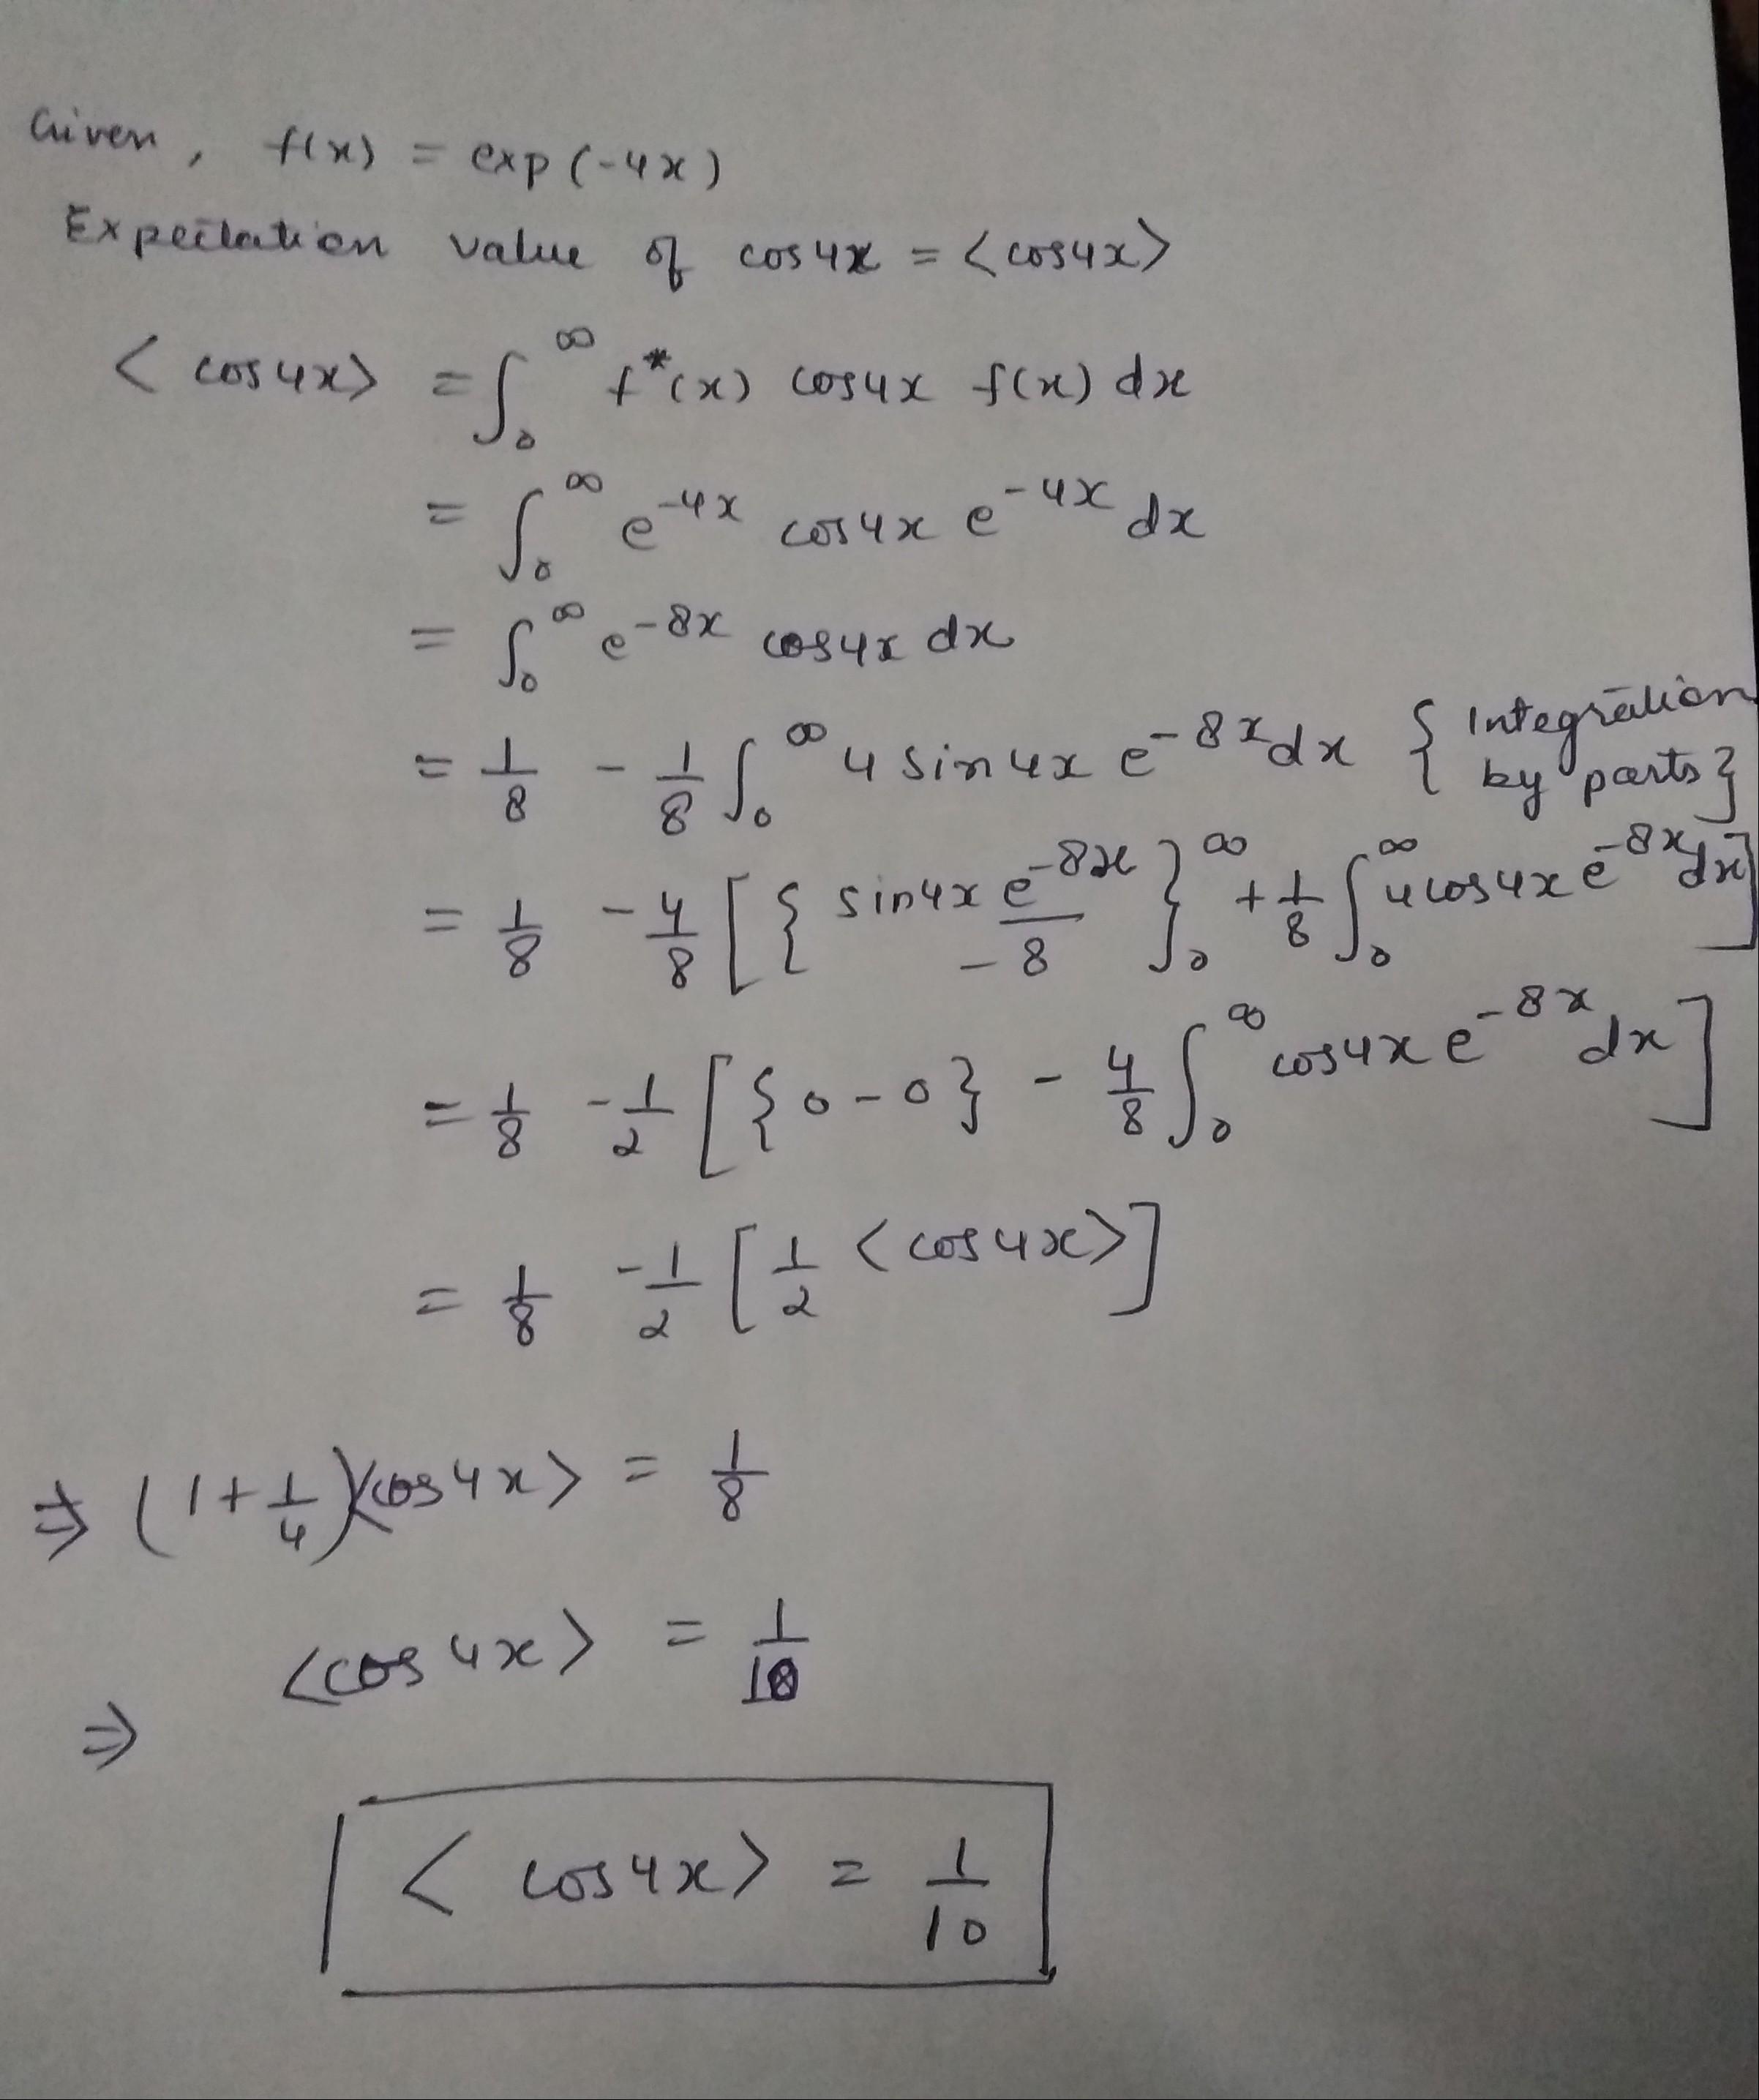 Given, f(x) = exp(-4x)
Expectation value of cos4x = <cos4x>
< cos4x> = ∫₀^∞ f*(x) cos4x f(x) dx
= ∫₀^∞ e^{-4x} cos4x e^{-4x} dx
= ∫₀^∞ e^{-8x} cos4x dx
= 1/8 - 1/8 ∫₀^∞ 4 sin4x e^{-8x} dx { Integration by parts }
= 1/8 - 4/8 [ { sin4x e^{-8x}/-8 }₀^∞ + 1/8 ∫₀^∞ 4cos4x e^{-8x} dx ]
= 1/8 - 1/2 [ {0-0} - 4/8 ∫₀^∞ cos4x e^{-8x} dx ]
= 1/8 - 1/2 [ 1/2 <cos4x> ]
⇒ (1+1/4)<cos4x> = 1/8
<cos4x> = 1/10
⇒
< cos4x> = 1/10